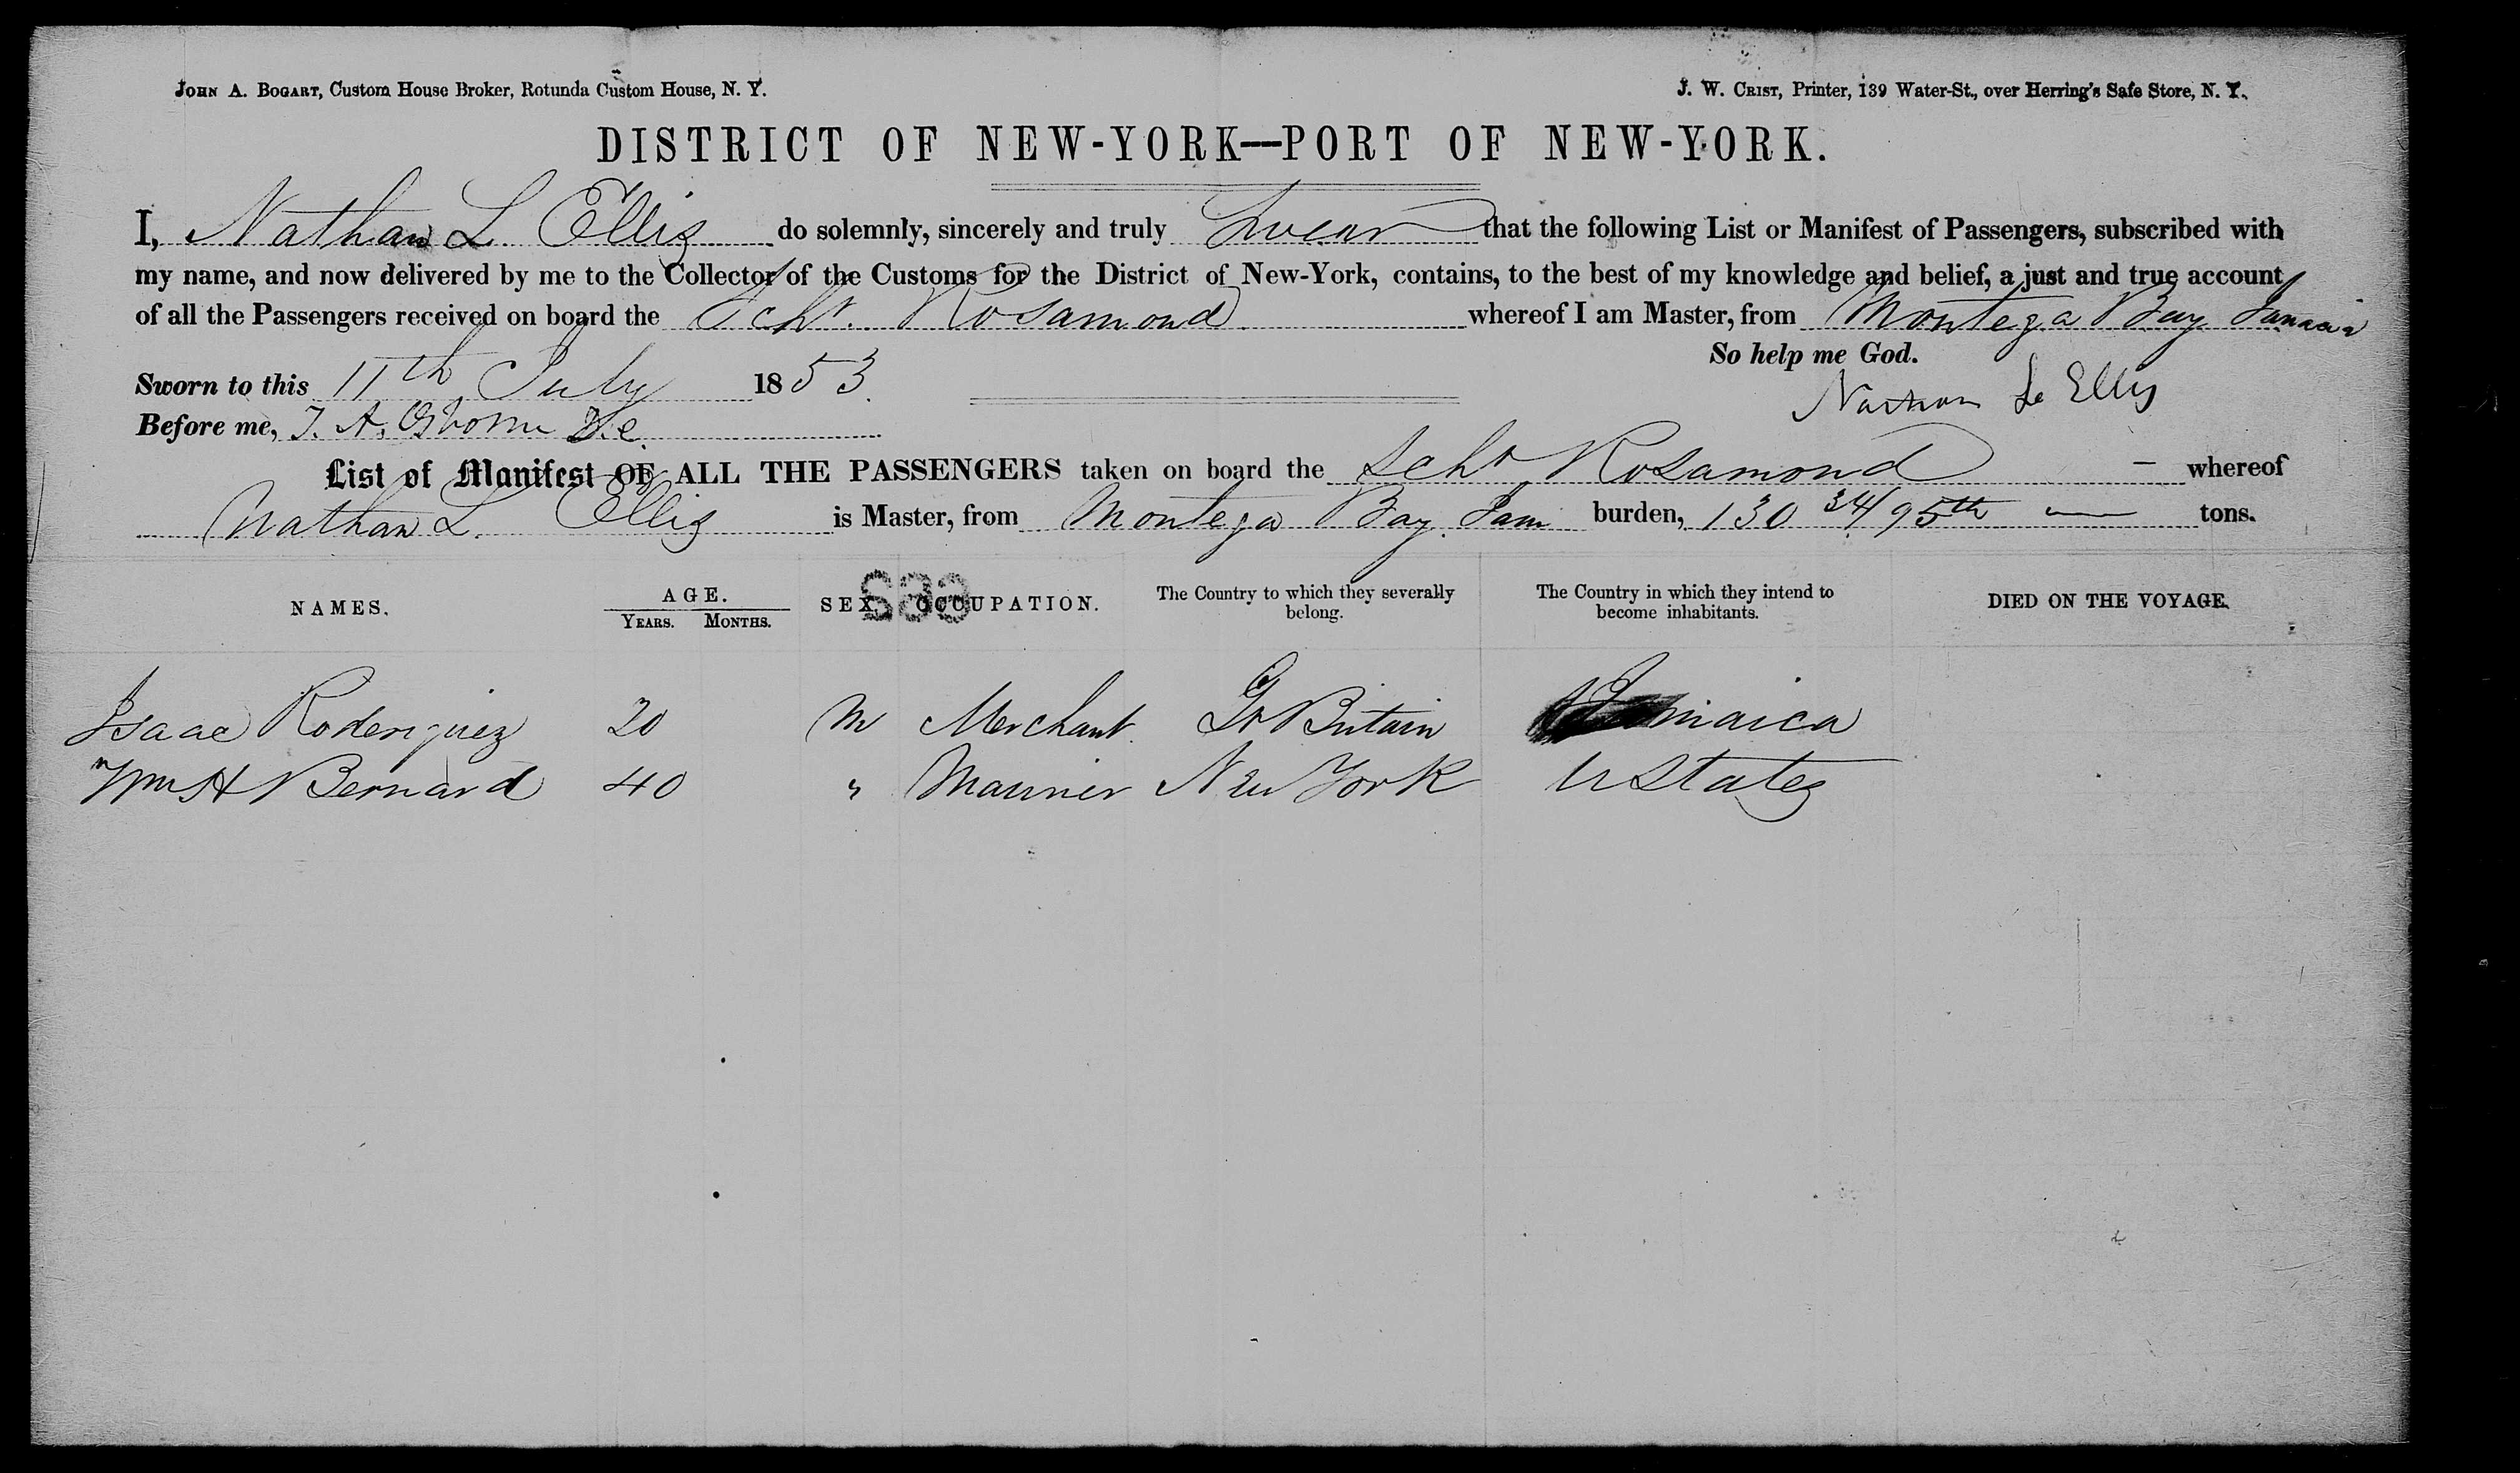 JOHN A. BOGART, Custom House Broker, Rotunda Custom House, N. Y.
J. W. CRIST, Printer, 139 Water-St., over Herring's Safe Store, N. Y.
DISTRICT OF NEW-YORK—PORT OF NEW-YORK.
I, Nathan L Ellis do solemnly, sincerely and truly Swear that the following List or Manifest of Passengers, subscribed with
my name, and now delivered by me to the Collector of the Customs for the District of New-York, contains, to the best of my knowledge and belief, a just and true account
of all the Passengers received on board the Schr. Rosamond whereof I am Master, from Montega Bay Jamaica
So help me God.
Sworn to this 11th July 1853.
Nathan L Ellis
Before me, T. A. Osborn D.C.
List of Manifest OF ALL THE PASSENGERS taken on board the Schr Rosamond — whereof
Nathan L. Ellis is Master, from Montega Bay. Jam burden, 130 34/95th — tons.
NAMES. AGE. YEARS. MONTHS. SEX. OCCUPATION. The Country to which they severally belong. The Country in which they intend to become inhabitants. DIED ON THE VOYAGE.
Isaac Roderiquez 20 M Merchant. Gr Britain Jamaica
Wm H Bernard 40 " Mariner New York U States